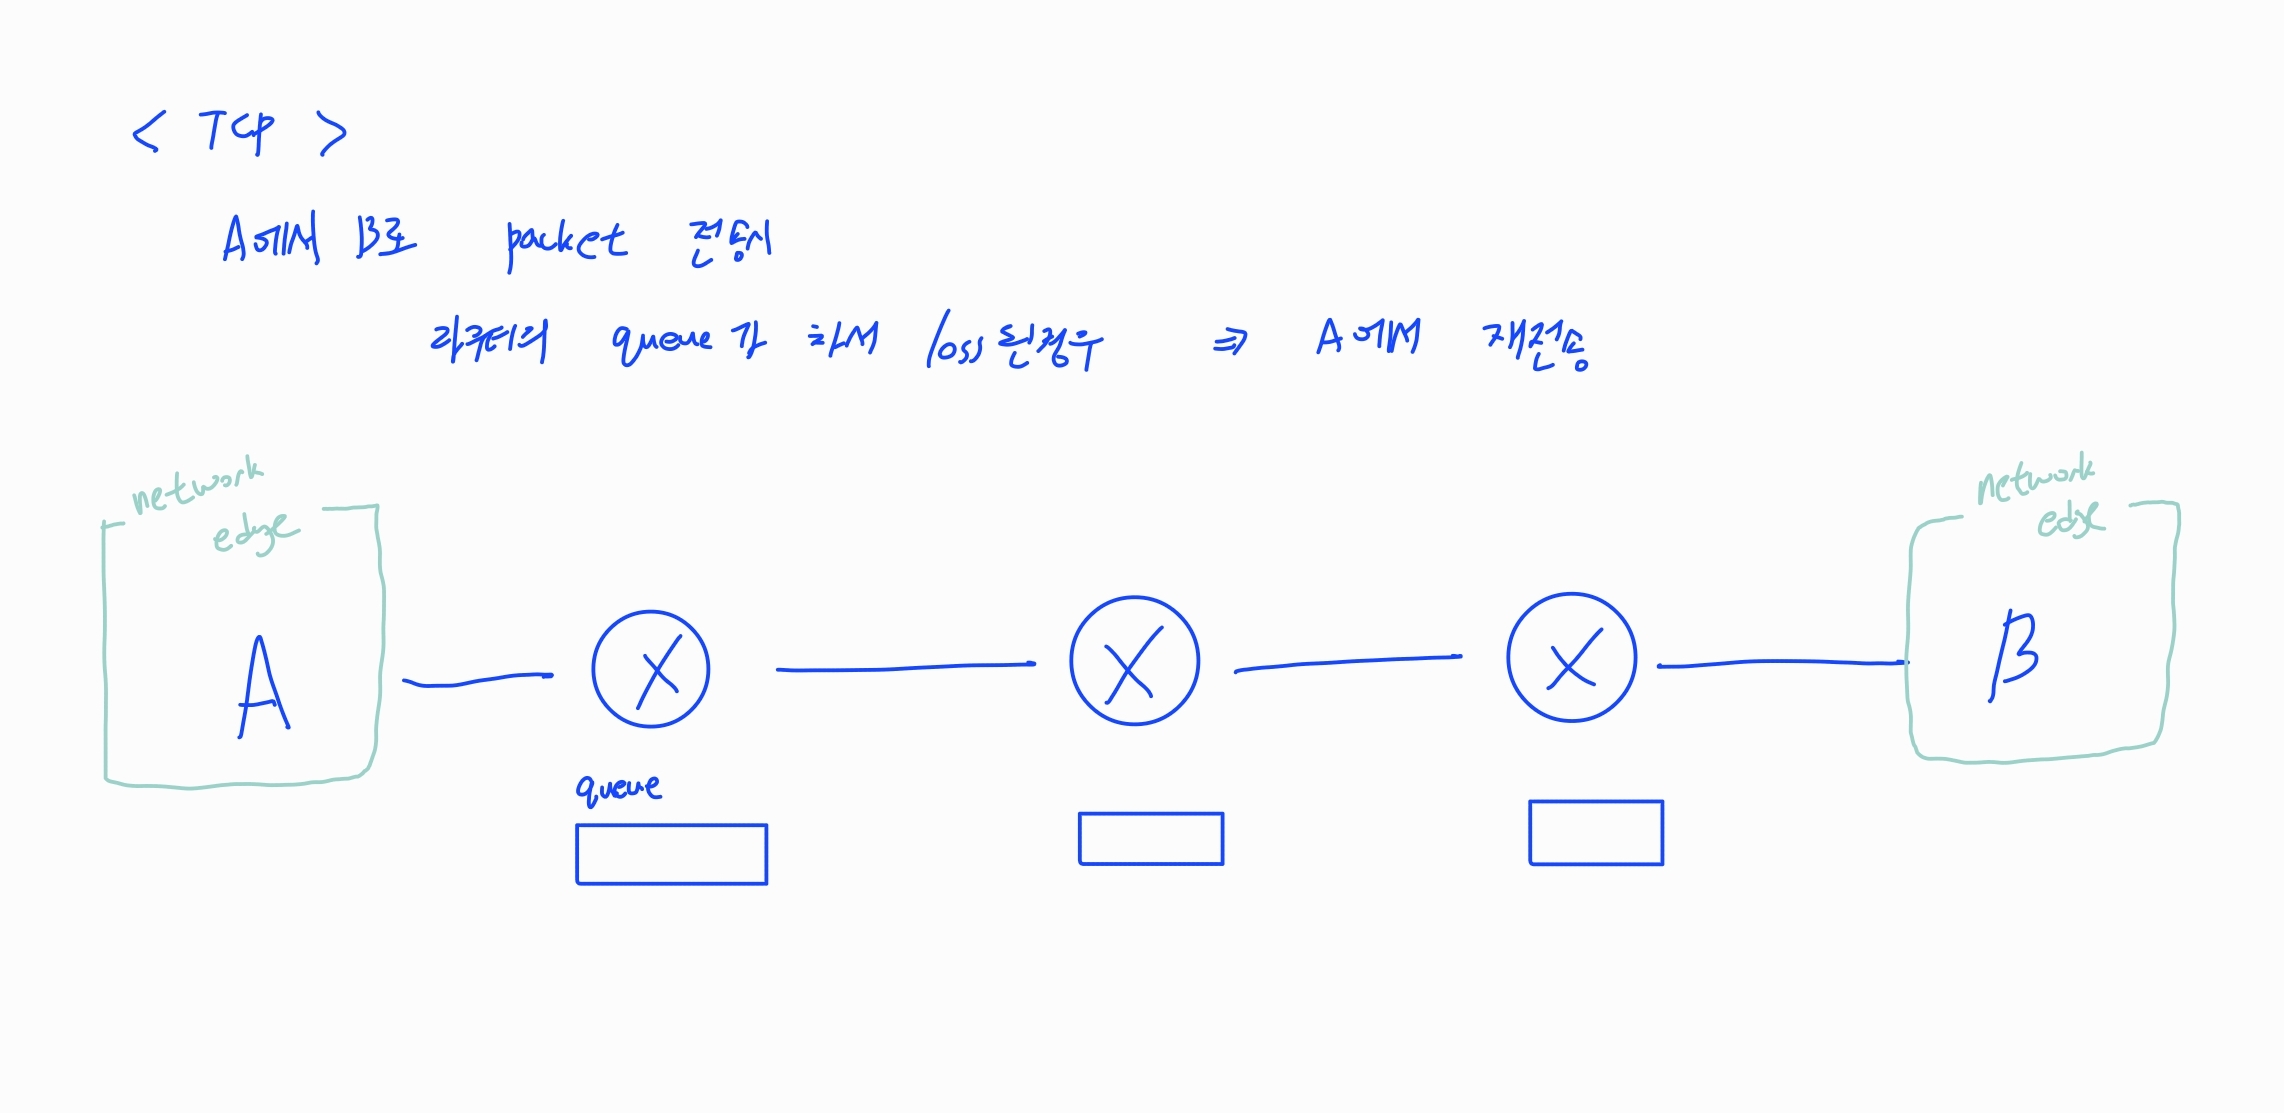 < TCP >
A에서 B로 packet 전송시
라우터의 queue가 차서 loss 된경우 ⇒ A에서 재전송
network
edge
network
edge
A
X
X
X
B
queue